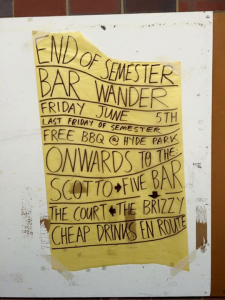 END OF SEMESTER
BAR WANDER
FRIDAY JUNE 5TH
LAST FRIDAY OF SEMESTER
FREE BBQ @ HYDE PARK
ONWARDS TO THE
SCOTTO → FIVE BAR
THE COURT ← THE BRIZZY
CHEAP DRINKS EN ROUTE